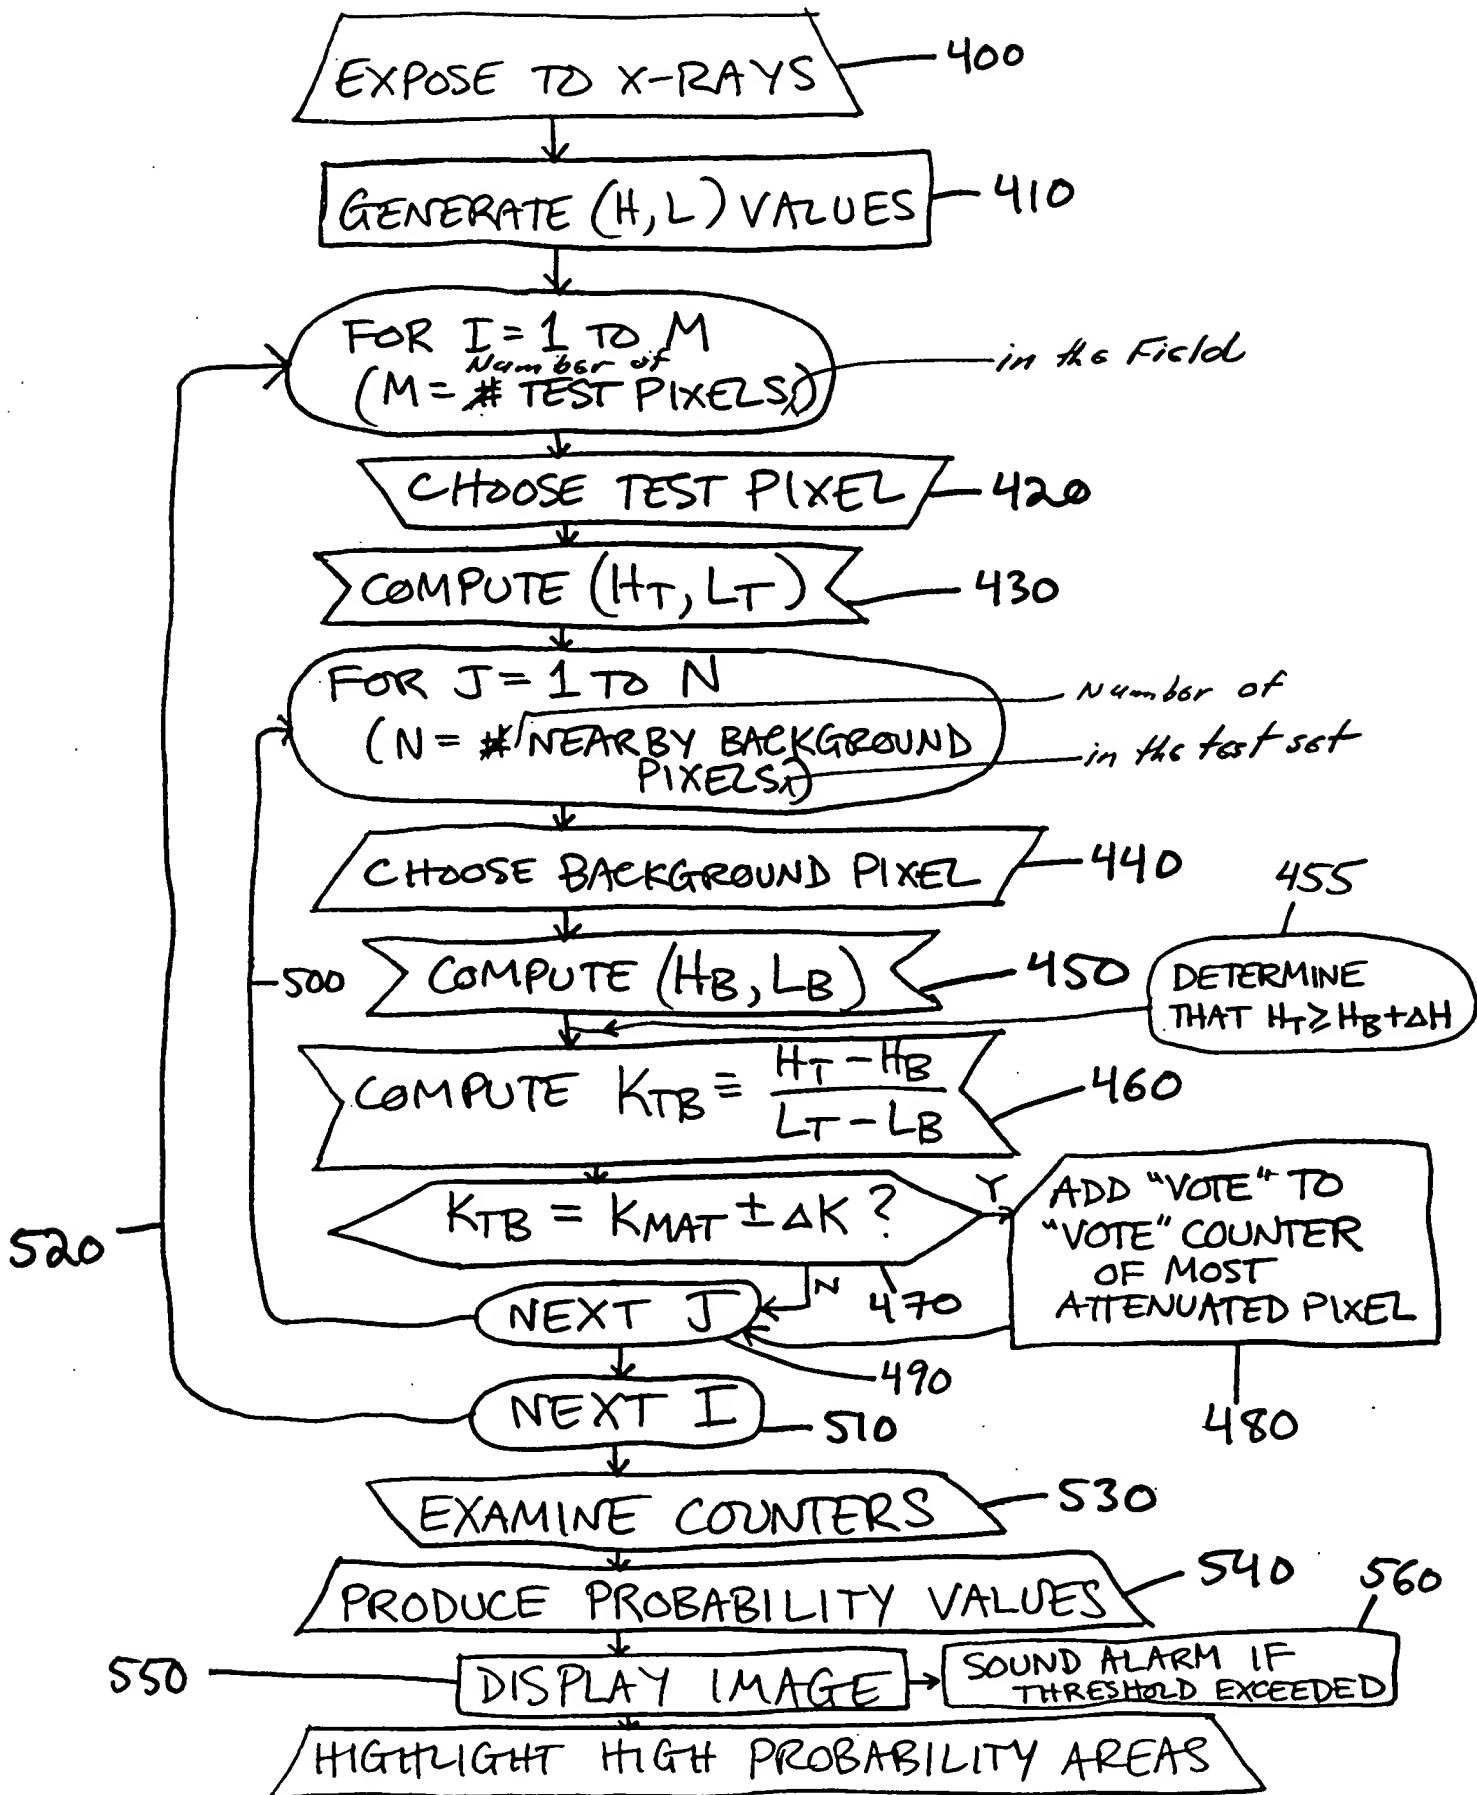 EXPOSE TO X-RAYS
400
GENERATE (H,L) VALUES
410
FOR I = 1 TO M
Number of
(M = # TEST PIXELS)
in the Field
CHOOSE TEST PIXEL
420
COMPUTE (HT, LT)
430
FOR J = 1 TO N
Number of
(N = # NEARBY BACKGROUND
PIXELS)
in the test set
CHOOSE BACKGROUND PIXEL
440
455
500
COMPUTE (HB, LB)
450
DETERMINE
THAT HT ≥ HB + ΔH
COMPUTE KTB ≡ HT - HB
LT - LB
460
KTB = KMAT ± ΔK ?
Y
ADD "VOTE" TO
"VOTE" COUNTER
OF MOST
ATTENUATED PIXEL
520
N
470
NEXT J
490
NEXT I
510
480
EXAMINE COUNTERS
530
PRODUCE PROBABILITY VALUES
540
560
550
DISPLAY IMAGE
SOUND ALARM IF
THRESHOLD EXCEEDED
HIGHLIGHT HIGH PROBABILITY AREAS